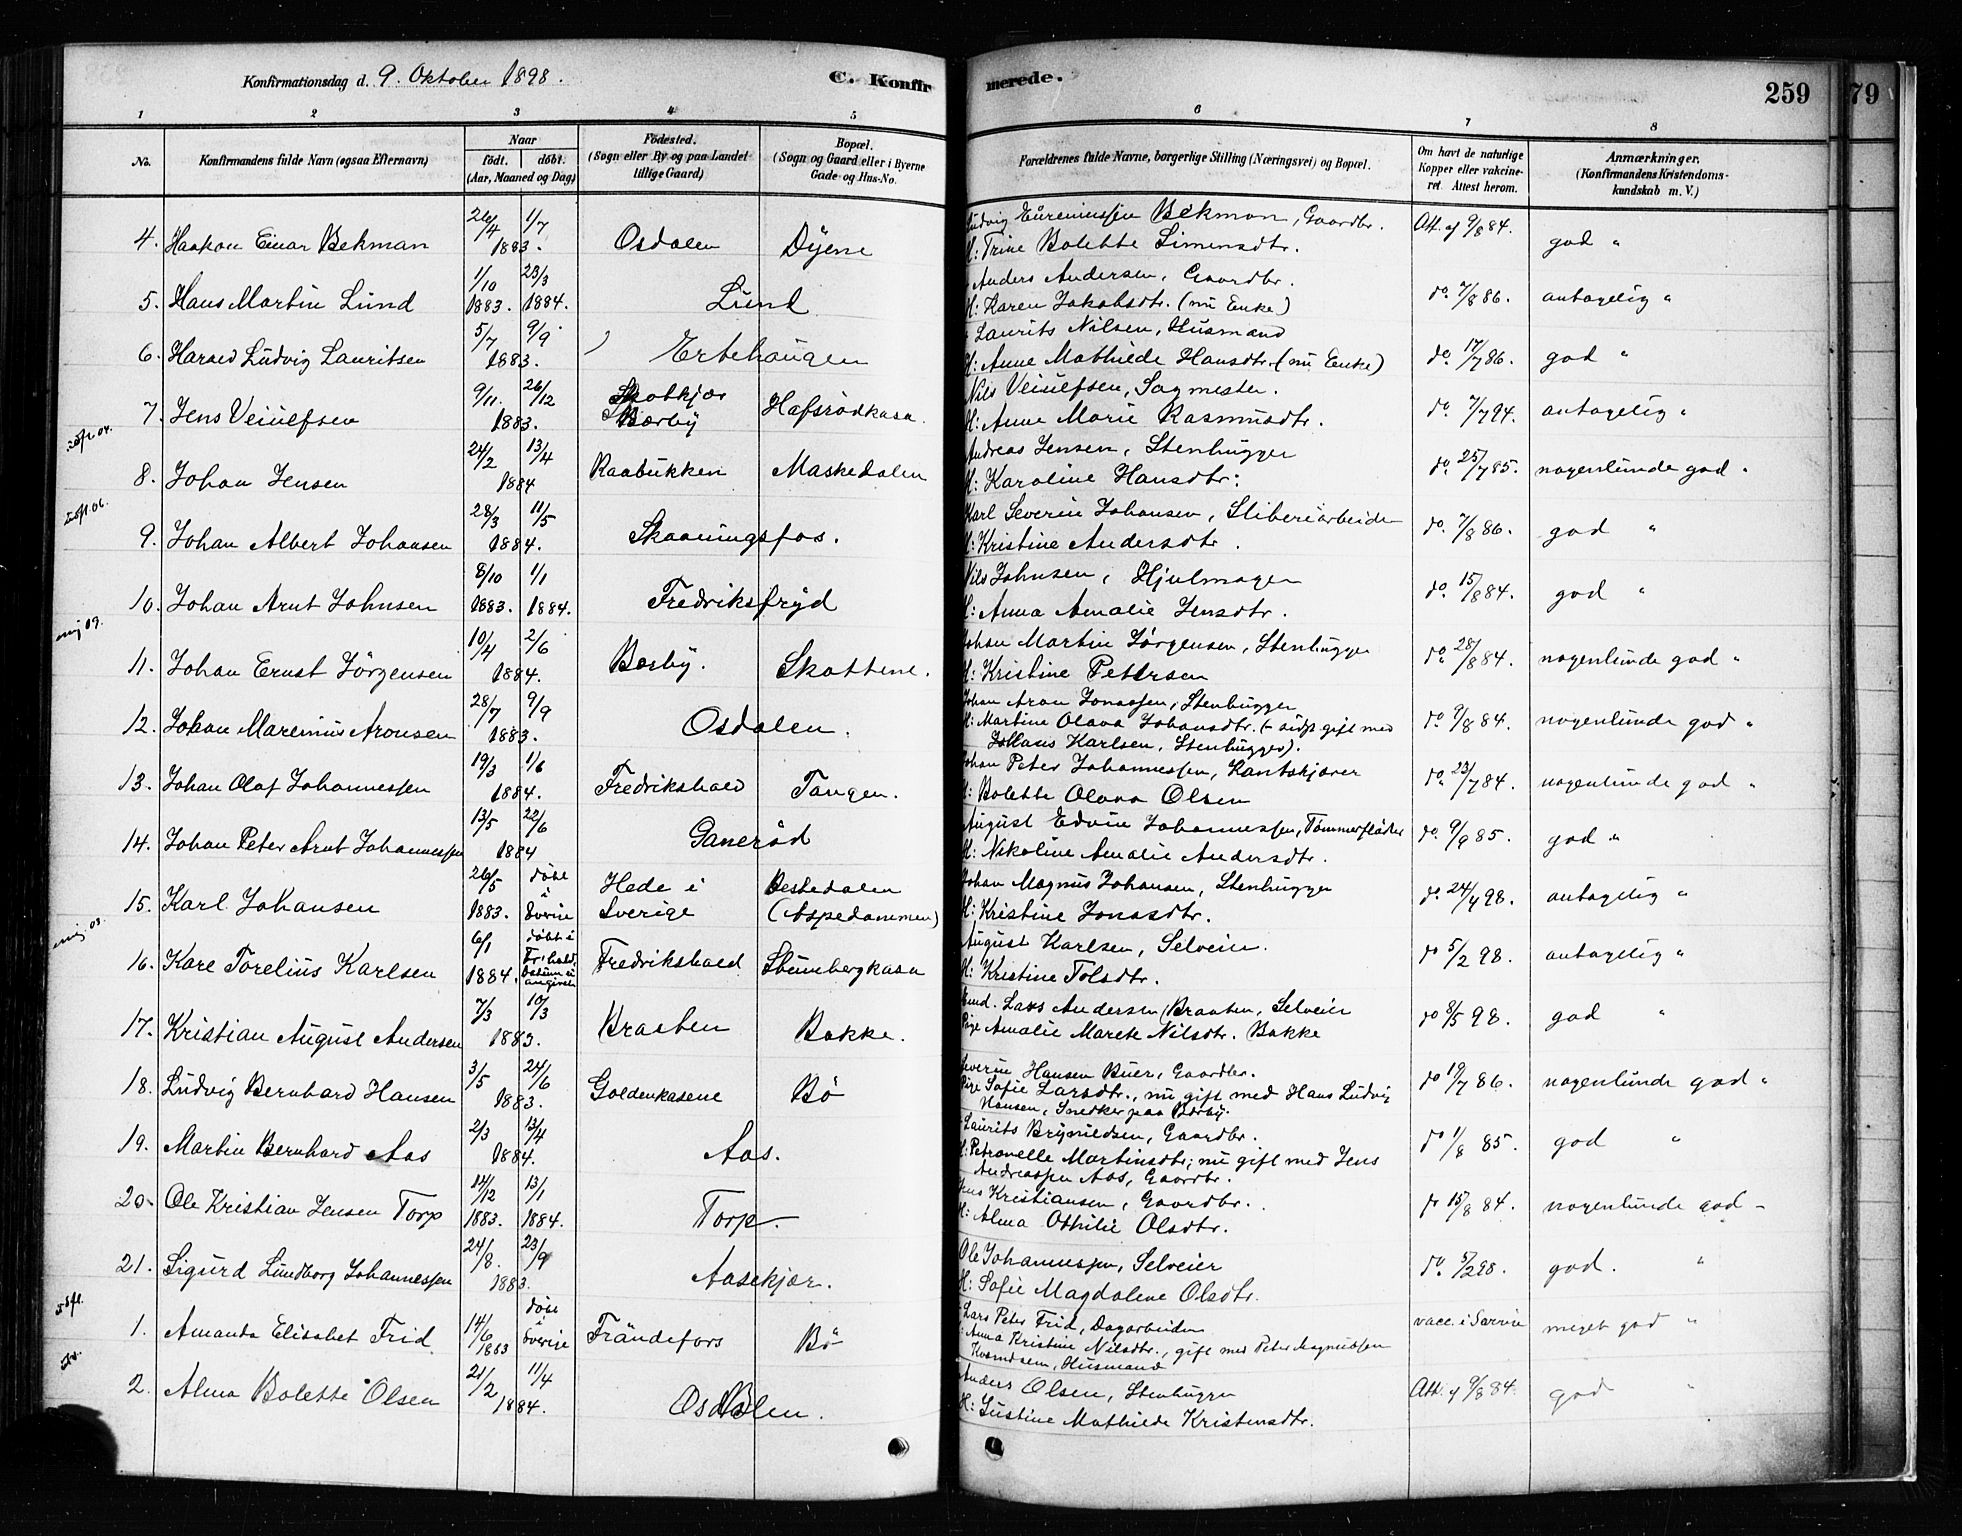 Konfirmationsdag d. 9. Oktober 1898.
C. Konfirmerede.
259
79
1 2 3 4 5 6 7 8
No.
Konfirmandens fulde Navn (ogsaa Efternavn)
Naar
født. døbt.
(Aar, Maaned og Dag)
Fødested.
(Sogn eller By og paa Landet tillige Gaard)
Bopæl.
(Sogn og Gaard eller i Byerne Gade og Hus-No.
Forældrenes fulde Navne, borgerlige Stilling (Næringsvei) og Bopæl.
Om havt de naturlige Kopper eller vakcineret. Attest herom.
Anmærkninger.
(Konfirmandens Kristendomskundskab m. V.)
4. Haakon Einar Bekman 26/4 1/7 1883. Osdalen Dyene Ludvig Eureniussen Bekman, Gaardbr. Att. af 9/8 84. god "
H: Trine Bolette Simensdtr.
5. Hans Martin Lund 1/10 1883. 23/3 1884. Lund Anders Andersen, Gaardbr. do. 7/8 86. antagelig "
H: Karen Jakobsdtr. (nu Enke)
6. Harald Ludvig Lauritsen 5/7 9/9 1883. Ertehaugen Laurits Nilsen, Husmand do. 17/7 86. god "
H: Anne Mathilde Hansdtr. (nu Enke)
7. Jens Veiulfsen 9/11. 26/12 1883. Skotkjær Berby Hafsrødkasa. Nils Veiulfsen, Sagmester. do. 7/7 94. antagelig "
H: Anne Marie Rasmusdtr.
8. Johan Jensen 24/2 13/4 1884 Raabukken Maskedalen Andreas Jensen, Stenhugger do. 25/7 85. nogenlunde god "
H: Karoline Hansdtr.
9. Johan Albert Johansen 28/3 11/5 1884. Skaaningsfos. Karl Severin Johansen, Sliberiarbeider do. 7/8 86. god "
H: Kristine Andersdtr.
10. Johan Arnt Johnsen 8/10 1883. 1/1 1884. Fredriksfryd Nils Johnsen, Hjulmager do. 15/8 84. god "
H: Anna Amalie Jensdtr.
11. Johan Ernst Jørgensen 10/4 2/6 1884. Berby. Skottene. Johan Martin Jørgensen, Stenhugger do. 28/8 84. nogenlunde god "
H: Kristine Pettersen
12. Johan Marenius Aronsen 28/7 9/9 1883. Osdalen. Johan Aron Jonassen, Stenhugger do. 9/8 84. nogenlunde god "
H: Martine Olava Johansdtr. gift med
Johans Karlsen, Stenhugger).
13. Johan Olaf Johannessen 19/3 1/6 1884. Fredrikshald Tangen. Johan Peter Johannessen, Kantskjærer do. 23/7 84. nogenlunde god "
H: Bolette Olava Olsen
14. Johan Peter Arnt Johannessen 13/5 22/6 1884 Ganerød August Edvin Johannessen, Tømmerfløder do. 9/9 85. god "
H: Nikoline Amalie Andersdtr.
15. Karl Johansen 26/5 1883. døbt i Sverige Hede i Sverige Vestedalen (Aspedammen) Johan Magnus Johansen, Stenhugger do. 24/4 98. antagelig "
H: Kristine Jonasdtr.
16. Kare Torelius Karlsen 6/1 1884. døbt i Fr.hald, datum ei angivet Fredrikshald Stumbergkasa August Karlsen, Selveier. do 5/2 98. antagelig "
H: Kristine Tolsdtr.
17. Kristian August Andersen 7/3 10/3 1883. Braaten Bakke. Lars Andersen Braaten, Selveier do 8/5 98. god "
Pige Amalie Marete Nilsdtr. Bakke
18. Ludvig Bernhard Hansen 3/5 24/6 1883. Goldenkasene Bø Severin Hansen Buer, Gaardbr. do 19/7 86. nogenlunde god "
Pige Sofie Larsdtr., nu gift med Hans Ludvig
Hansen, Snedker paa Berby.
19. Martin Bernhard Aas 2/3 13/4 1884. Aas. Laurits Brynildsen, Gaardbr. do 1/8 85. god "
H: Petronelle Martinsdtr; nu gift med Jens
Andreassen Aas, Gaardbr.
20. Ole Kristian Jensen Torp 14/12 1883. 13/1 1884. Torp. Jens Kristiansen, Gaardbr. do 15/8 84. nogenlunde god "
H: Alma Othilie Olsdtr.
21. Sigurd Lundborg Johannessen 24/8. 23/9 1883. Aasekjær. Ole Johannessen, Selveier do. 5/2 98. god. "
H: Sofie Magdalene Olsdtr.
1. Amanda Elisabet Frid 14/6 1883 døbt i Sverige Frändefors Bø Lars Peter Frid, Dagarbeider vacc. i Sverige meget god "
Anna Kristine Nilsdtr., gift med Peter Magnussen
Husmand
2. Alma Bolette Olsen 21/2 11/4 1884. Osdalen. Anders Olsen, Stenhugger Att. af 9/8 84. god "
H: Gustine Mathilde Kristensdtr.